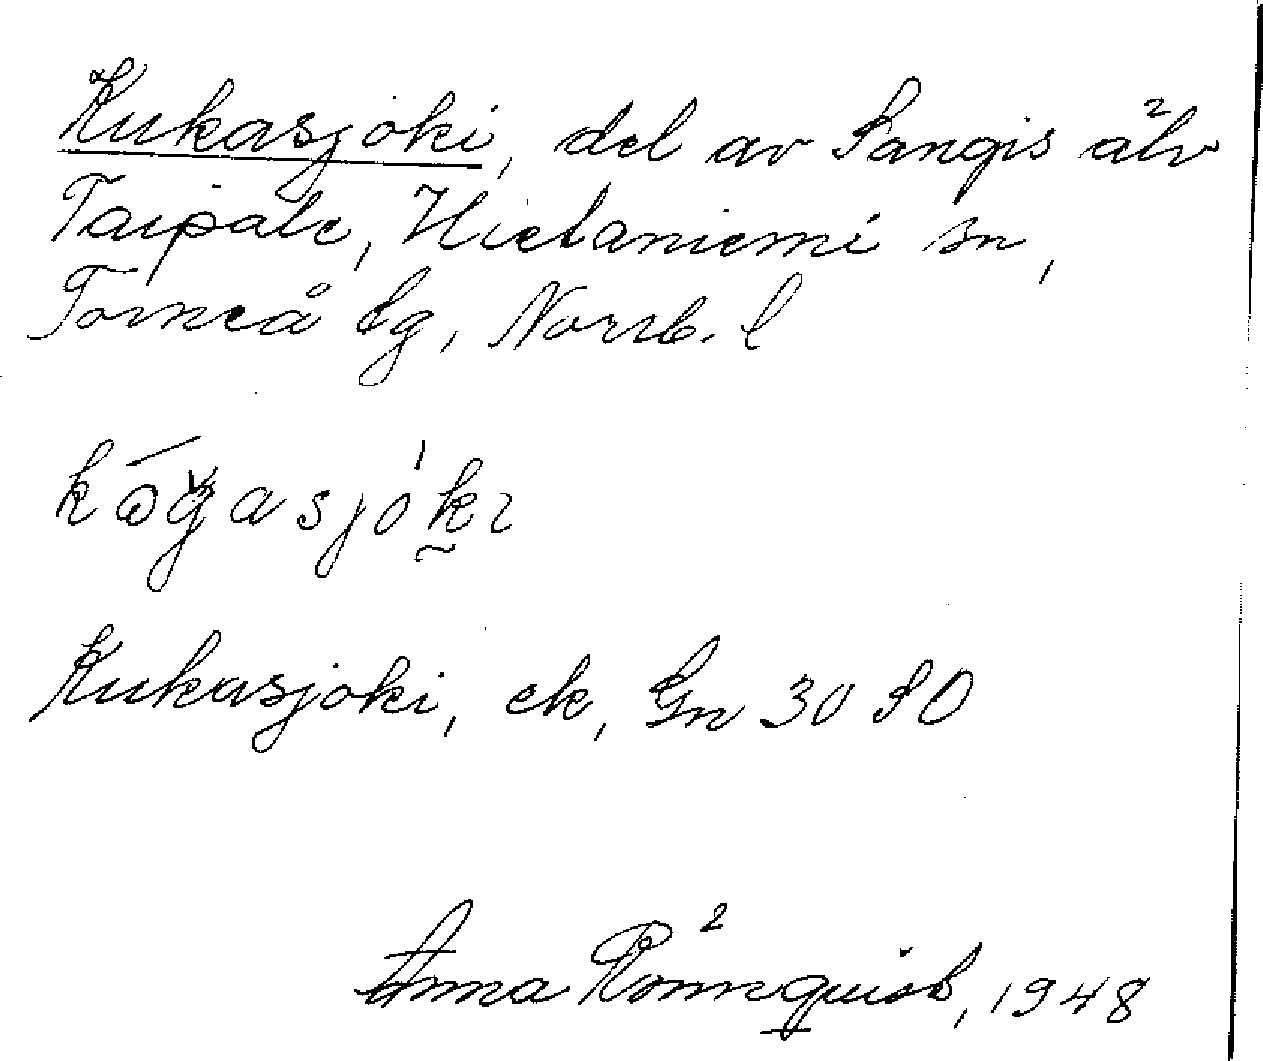 Kukasjoki, del av Sangis älv
Taipale, Hietaniemi sn,
Torneå tg, Norrb. l
Kukasjoki, ek, Gn 30 SO
Anna Rönnquist, 1948